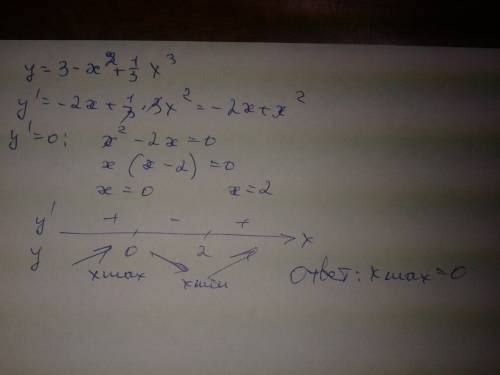 y = 3 - x² + 1/3 x³
y' = -2x + 1/3 · 3x² = -2x + x²
y' = 0: x² - 2x = 0
x (x - 2) = 0
x = 0 x = 2
y' + - + x
y 0 2
xmax xmin Ответ: xmax = 0